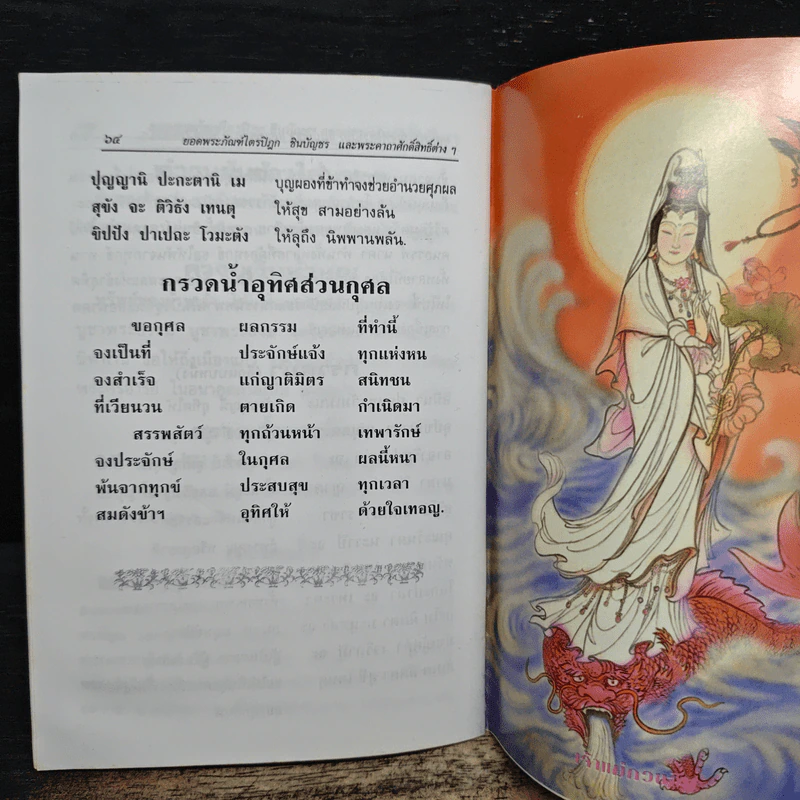 ๖๔ ยอดพระกัณฑ์ไตรปิฎก ชินบัญชร และพระคาถาศักดิ์สิทธิ์ต่าง ๆ
ปุญญานิ ปะกะตานิ เม บุญผองที่ข้าทำจงช่วยอำนวยศุภผล
สุขัง จะ ติวิธัง เทนตุ ให้สุข สามอย่างล้น
ขิปปัง ปาเปถะ โวมะตัง ให้ลุถึง นิพพานพลัน.
กรวดน้ำอุทิศส่วนกุศล
ขอกุศล ผลกรรม ที่ทำนี้
จงเป็นที่ ประจักษ์แจ้ง ทุกแห่งหน
จงสำเร็จ แก่ญาติมิตร สนิทชน
ที่เวียนวน ตายเกิด กำเนิดมา
สรรพสัตว์ ทุกถ้วนหน้า เทพารักษ์
จงประจักษ์ ในกุศล ผลนี้หนา
พ้นจากทุกข์ ประสบสุข ทุกเวลา
สมดังข้าฯ อุทิศให้ ด้วยใจเทอญ.
เจ้าแม่กวนอิม